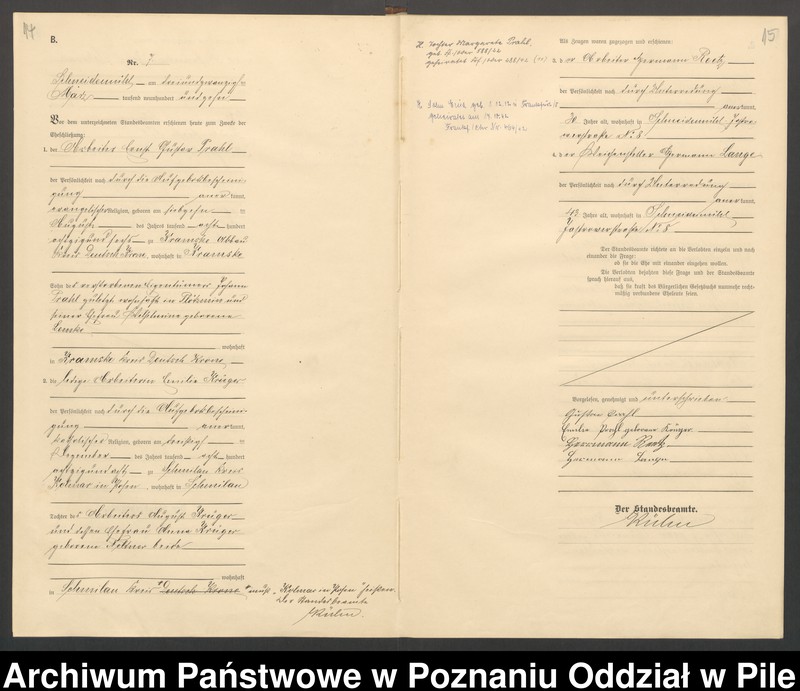 14
B.
Nr. 7
Schneidemühl, am dreiundzwanzig-
März tausend neunhundert und zehn
Vor dem unterzeichneten Standesbeamten erschienen heute zum Zwecke der
Eheschließung:
1. der Arbeiter Ernst Gustav Prahl
der Persönlichkeit nach durch die Aufgebotsbeschein-
gung anerkannt,
evangelischer Religion, geboren am siebzehn
August des Jahres tausend acht hundert
achtzigundsechs zu Kramske Abbau
Kreis Deutsch Krone, wohnhaft in Kramske
Sohn des verstorbenen Eigentümers Johann
Prahl zuletzt wohnhaft in und
seiner Ehefrau Wilhelmine geborene
Lemke
wohnhaft
in Kramske Kreis Deutsch Krone
2. die ledige Arbeiterin Emilie Krüger
der Persönlichkeit nach durch die Aufgebotsbeschein-
gung anerkannt,
katholischer Religion, geboren am dreißig
Dezember des Jahres tausend acht hundert
achtzigundacht zu Schmilau Kreis
Kolmar in Posen, wohnhaft in Schmilau
Tochter des Arbeiters August Krüger
und dessen Ehefrau Anna Krüger
geborene beide
wohnhaft
in Schmilau Kreis Deutsch Krone muß „Kolmar in Posen" heißen.
Der Standesbeamte
Kühn
15
Tochter Margarete Prahl
geb.
geheiratet
Sohn Erich geb.
geheiratet am
Als Zeugen waren zugezogen und erschienen:
3. der Arbeiter Hermann Reetz
der Persönlichkeit nach durch Unterredung
anerkannt,
Jahre alt, wohnhaft in Schneidemühl, Jastro-
werstraße No 8
4. der Hermann Lange
der Persönlichkeit nach durch Unterredung
anerkannt,
Jahre alt, wohnhaft in Schneidemühl,
Jastrowerstraße No 8
Der Standesbeamte richtete an die Verlobten einzeln und nach
einander die Frage:
ob sie die Ehe mit einander eingehen wollen.
Die Verlobten bejahten diese Frage und der Standesbeamte
sprach hierauf aus,
daß sie kraft des Bürgerlichen Gesetzbuchs nunmehr recht-
mäßig verbundene Eheleute seien.
Vorgelesen, genehmigt und unterschrieben
Gustav Prahl
Emilie Prahl geborene Krüger
Herrmann Reetz
Hermann Lange
Der Standesbeamte.
Kühn
Archiwum Państwowe w Poznaniu Oddział w Pile